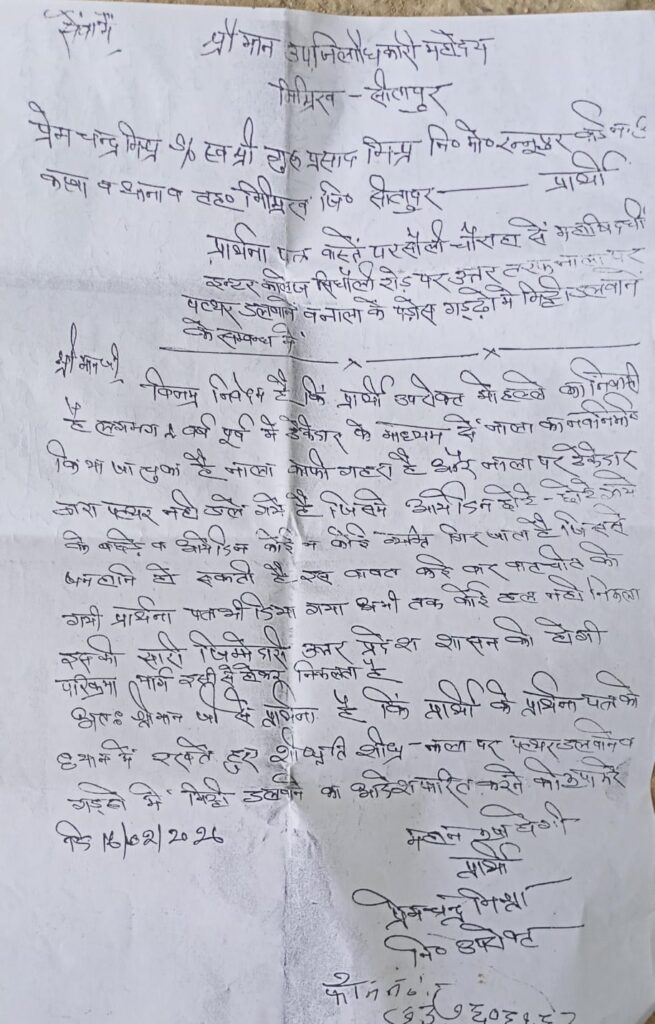 सेवा में
श्रीमान उपजिलाधिकारी महोदय
मिश्रिख - सीतापुर
प्रेम चन्द्र मिश्र S/o स्व श्री गुरू प्रसाद मिश्र नि० मो०
कस्बा व थाना व तह० मिश्रिख जि० सीतापुर ——— प्रार्थी
प्रार्थना पत्र वास्ते परसौली चौराहा से महर्षि दधीचि
इन्टर कालेज सिधौली रोड पर उत्तर तरफ नाला पर
पत्थर डलवाने व नाला के पड़ोस गड्ढो मे मिट्टी डलवाने
के सम्बन्ध में
श्री मान जी
विनम्र निवेदन है कि प्रार्थी उपरोक्त मोहल्ले का निवासी
है लगभग वर्ष पूर्व में ठेकेदार के माध्यम से नाला का नवनिर्माण
किया जा चुका है नाला काफी गहरा है और नाला पर ठेकेदार
द्वारा पत्थर नही डाले गये है जिसमे आये दिन छोटे - छोटे
के बच्चे व आये दिन कोई न कोई व्यक्ति गिर जाता है जिससे
जनहानि हो सकती है इस बावत कई बार बातचीत की
गयी प्रार्थना पत्र भी दिया गया अभी तक कोई हल नही निकला
इसकी सारी जिम्मेदारी उत्तर प्रदेश शासन की होगी
परिक्रमा मार्ग इसी से होकर निकलता है
अतः श्रीमान जी से प्रार्थना है कि प्रार्थी के प्रार्थना पत्र को
ध्यान में रखते हुए शीघ्र नाला पर पत्थर डलवाने व
गड्ढो में मिट्टी डलवाने का आदेश पारित करने की कृपा करे
दि० 16/02/2026
महान कृपा होगी
प्रार्थी
प्रेमचन्द्र मिश्रा
नि० उपरोक्त
फोन नं०